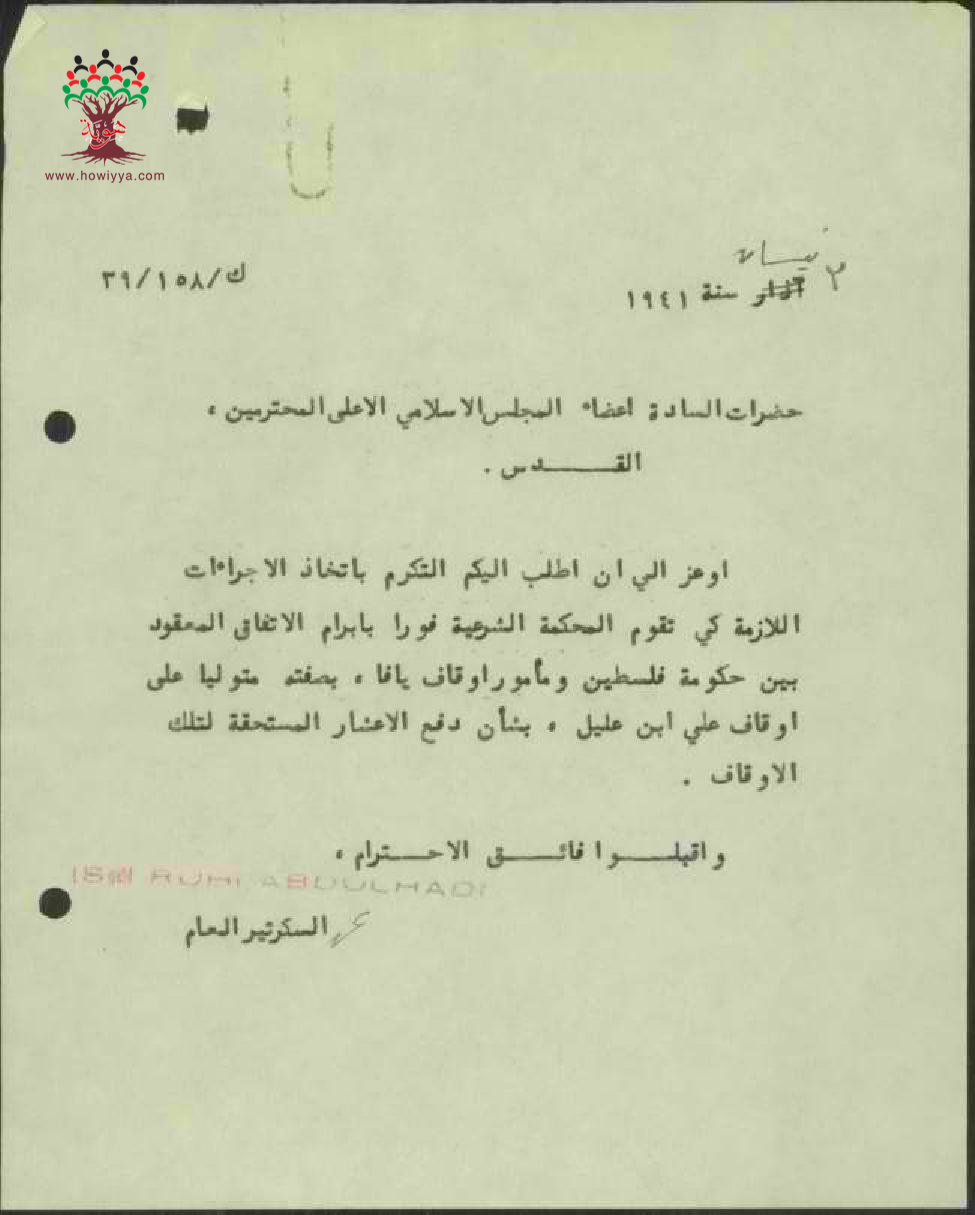 هوية
www.howiyya.com
نيسان
٣ آذار سنة ١٩٤١
ك/١٥٨/٣٩
حضرات السادة اعضاء المجلس الاسلامي الاعلى المحترمين ،
القـــــدس .
اوعز الي ان اطلب اليكم التكرم باتخاذ الاجراءات
اللازمة كي تقوم المحكمة الشرعية فورا بابرام الاتفاق المعقود
بين حكومة فلسطين ومأمور اوقاف يافا ، بصفته متوليا على
اوقاف علي ابن عليل ، بشأن دفع الاعشار المستحقة لتلك
الاوقاف .
واقبلـــوا فائـــق الاحـــترام ،
(Sgd) RUHI ABDULHADI
ع السكرتير العام